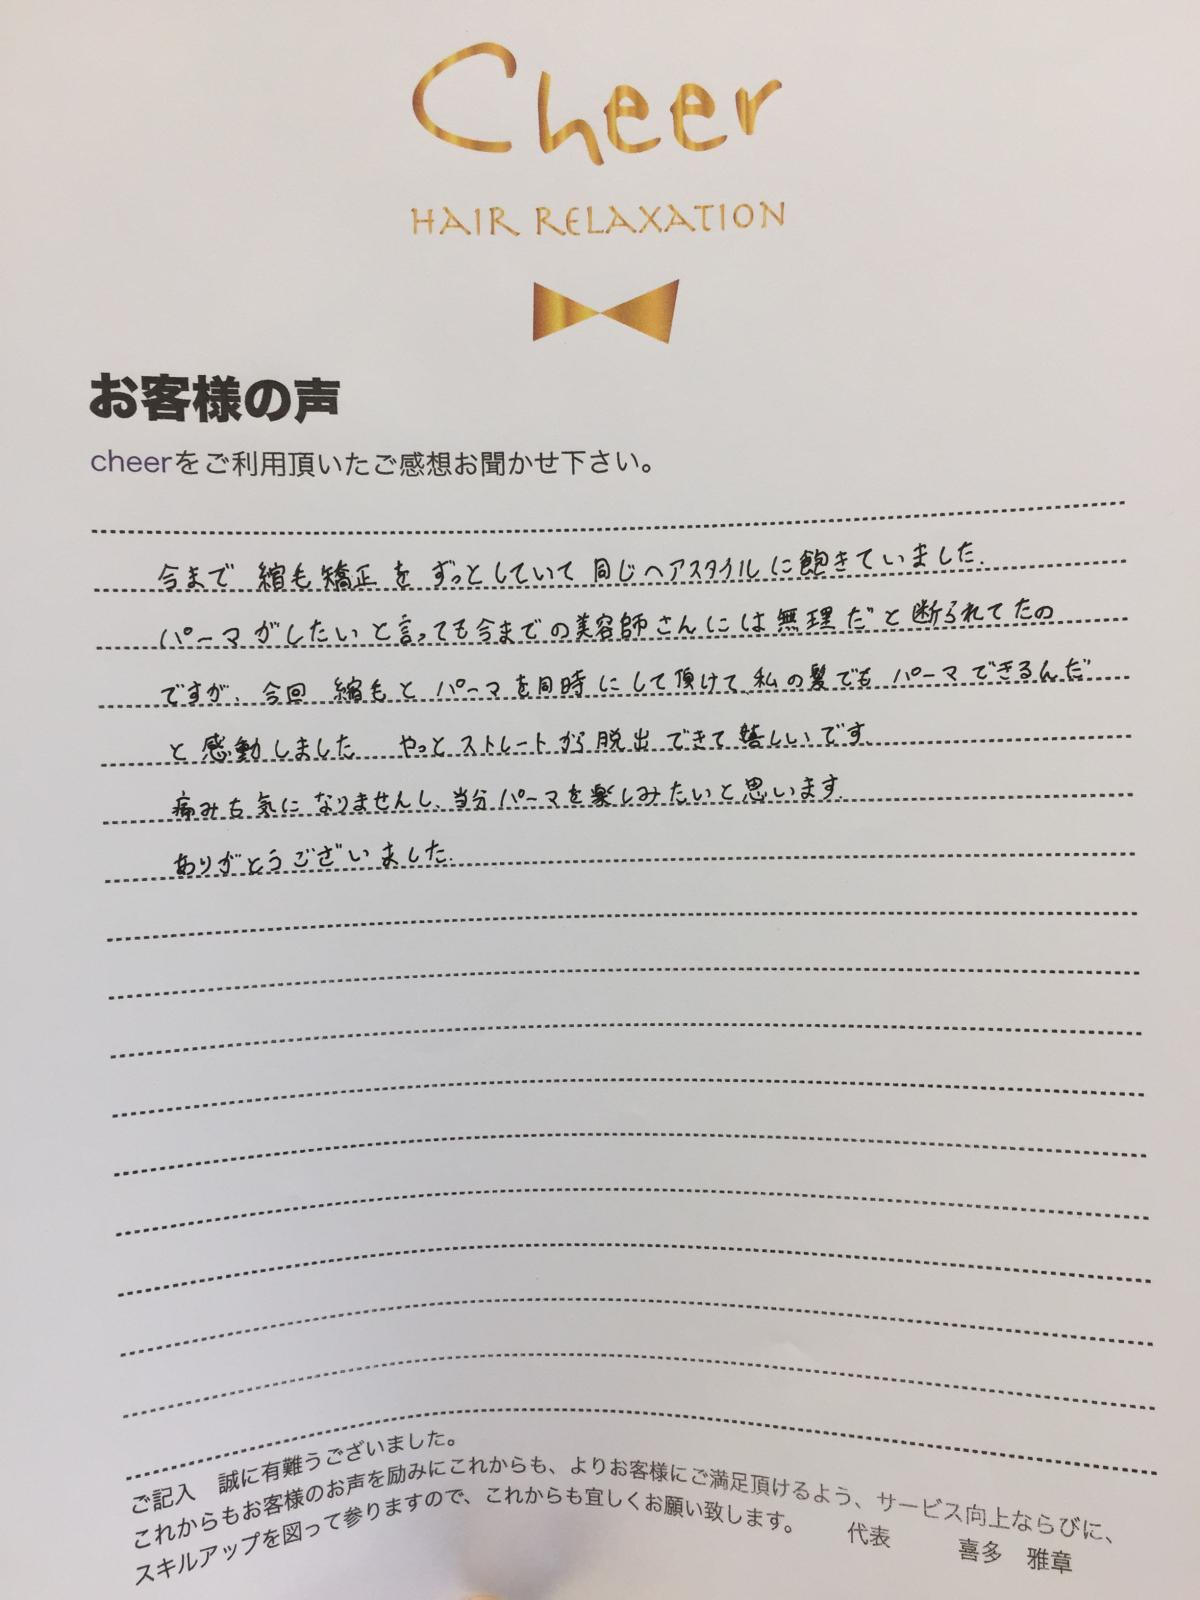 Cheer
HAIR RELAXATION
お客様の声
cheerをご利用頂いたご感想お聞かせ下さい。
今まで 縮毛矯正を ずっとしていて 同じヘアスタイルに飽きていました。
パーマがしたいと言っても今までの美容師さんには無理だと断られてたの
ですが、今回 縮毛とパーマを同時にして頂けて、私の髪でもパーマできるんだ
と感動しました やっとストレートから脱出できて嬉しいです。
痛みも気になりませんし、当分パーマを楽しみたいと思います。
ありがとうございました。
ご記入 誠に有難うございました。
これからもお客様のお声を励みにこれからも、よりお客様にご満足頂けるよう、サービス向上ならびに、
スキルアップを図って参りますので、これからも宜しくお願い致します。 代表 喜多 雅章